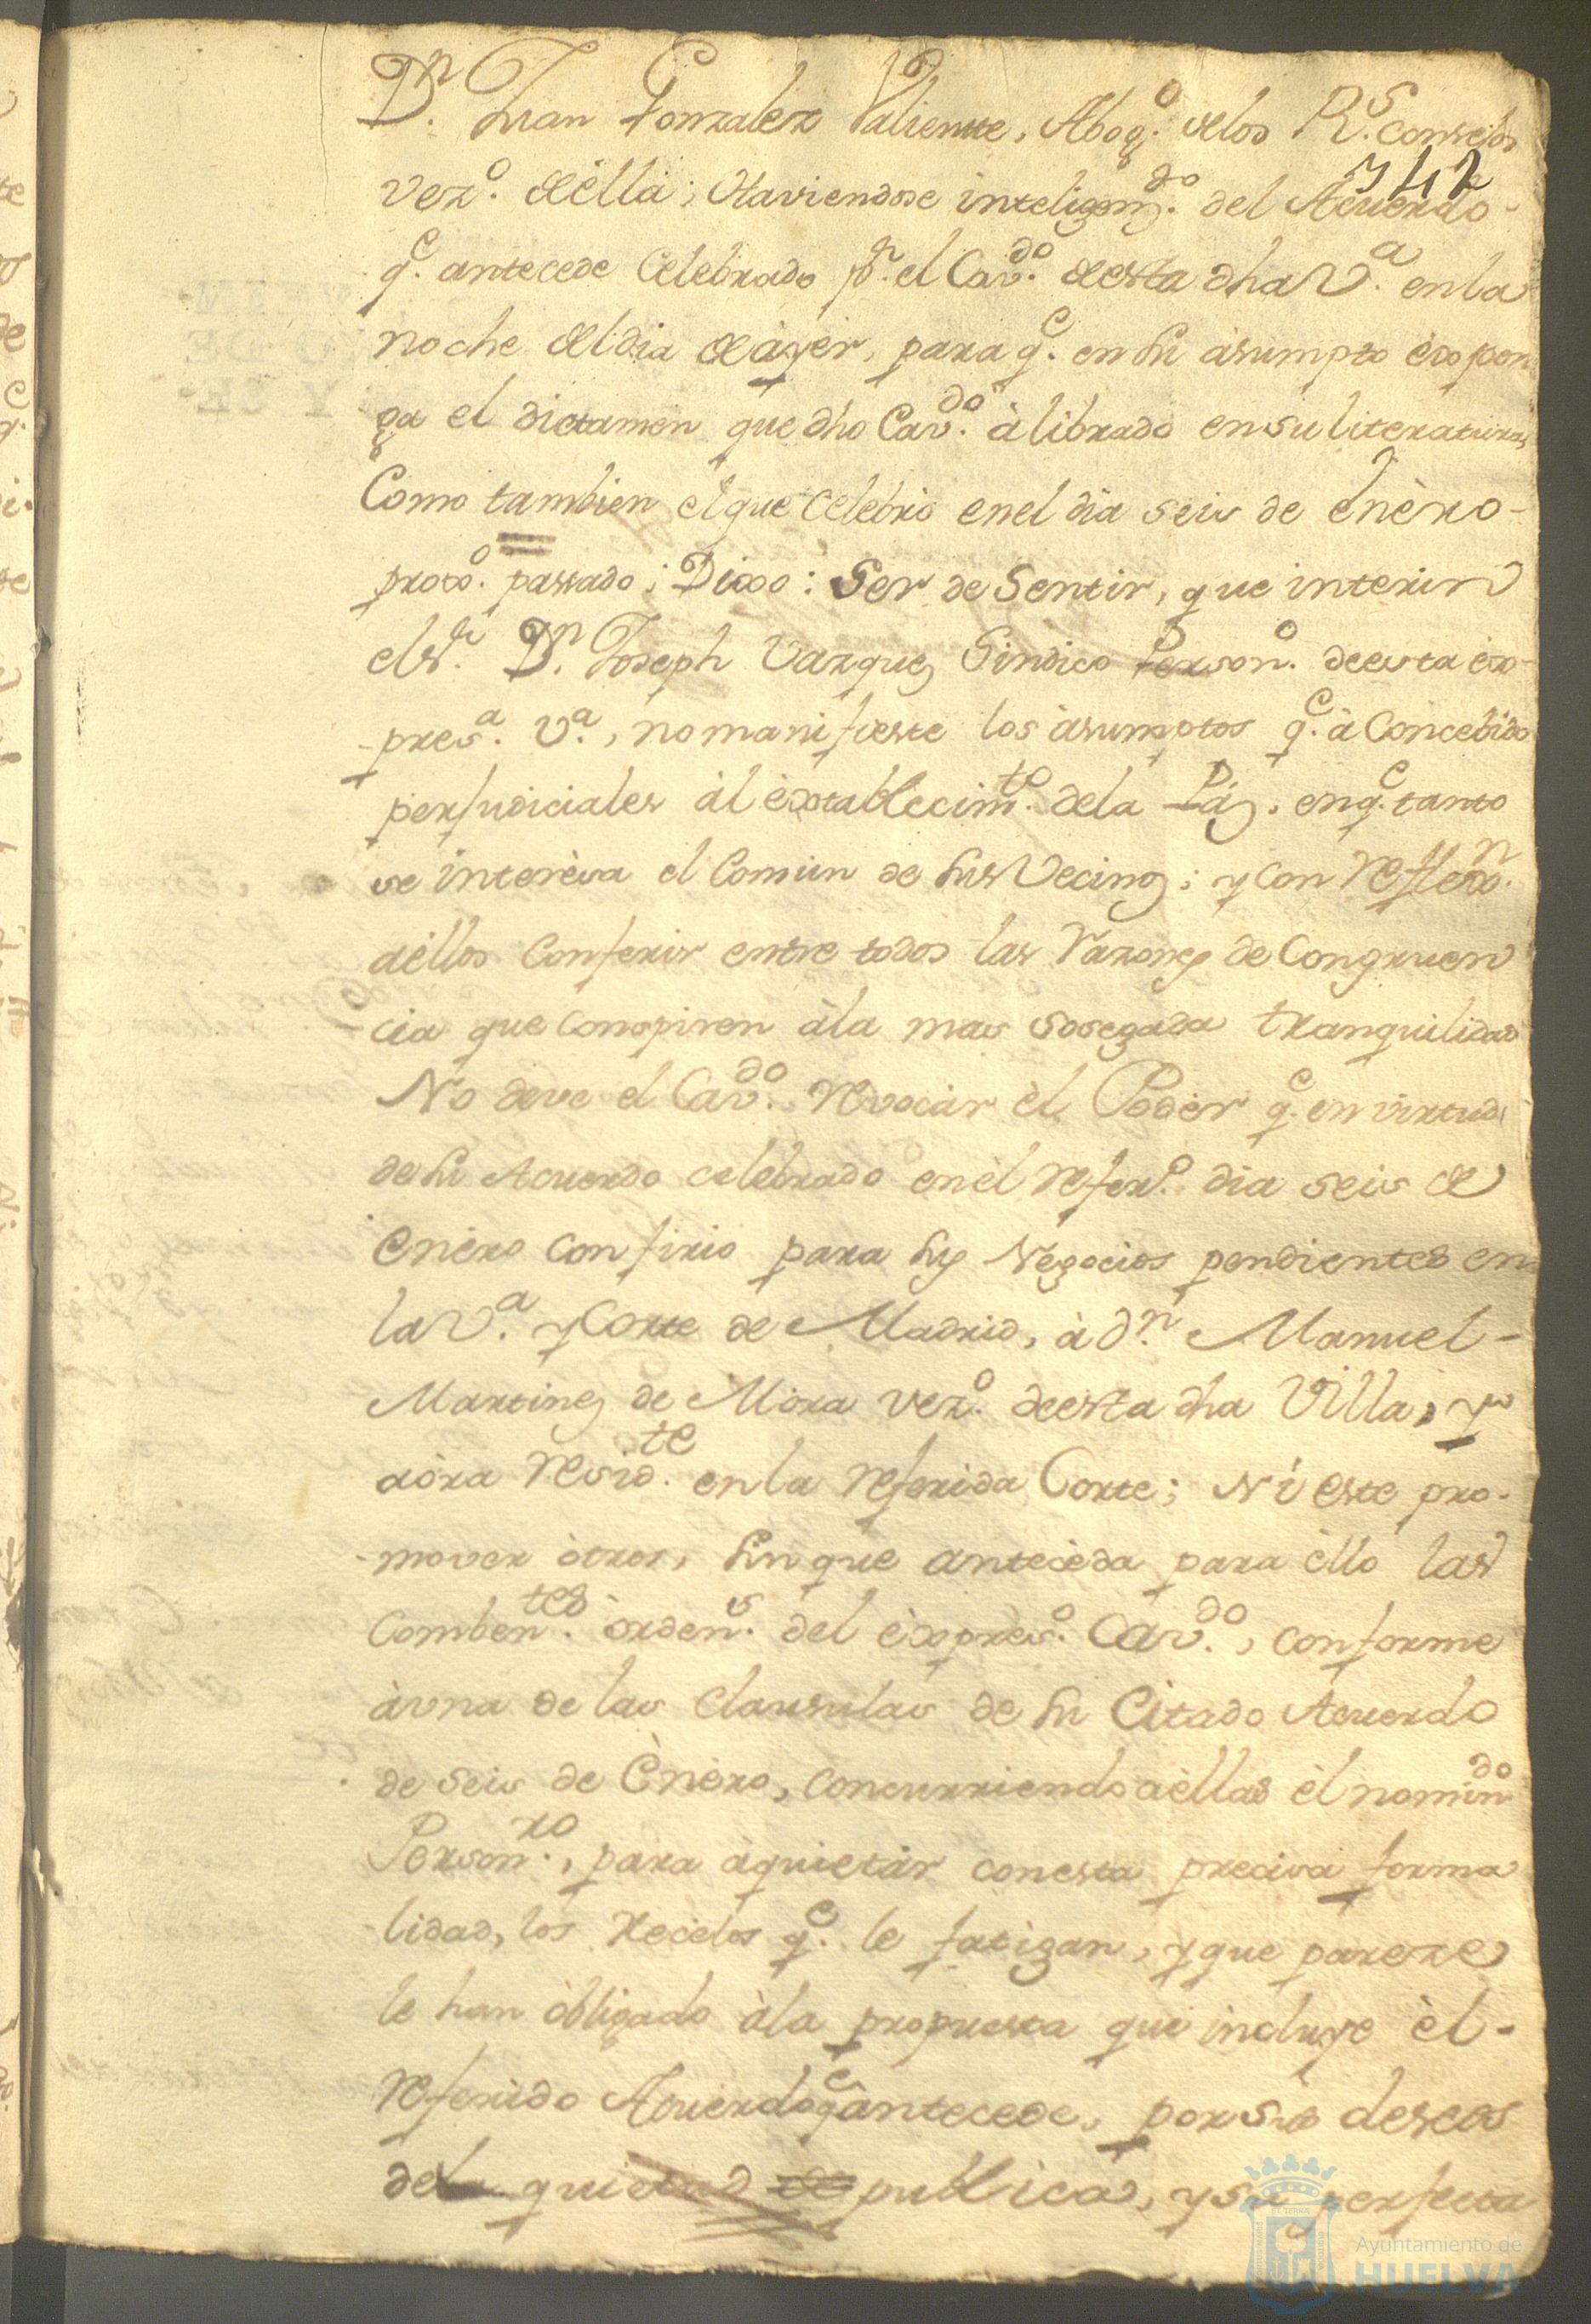 Dn. Juan Gonzalez Valiente, Abogo. delos Rs. Consejos
742
vezo. de èlla; Haviendose inteligenzdo. del Acuerdo-
qe. antecede Celebrado pr. el Cavdo. de esta dha Va. en la
noche del dia de àyer, para qe. en su àsumpto èxpon
ga el dictamen que dho Cavdo. à librado en su literatura,
Como tambien el que Celebrò en el dia seis de Enèro-
proxo. passado; Dixo: Ser de Sentir, que interin
el Sr. Dn. Joseph Vazquez Sindico Persono. de esta èx-
-presa. Va., no manifieste los àsumptos qe. à Concebido
perjudiciales àl èxtablecimte. dela Paz, en qe. tanto
se interèsa el Comun de sus Vecinos; y con reflexn.
aèllos Conferir entre todos las razones de Congruen
cia que conspiren àla mas sosegada tranquilidad
No deve el Cavdo. revocar èl Poder qe. en virtud
de su Acuerdo celebrado en èl refero. dia seis de
Enèro confirio para sus Negocios pendientes en
la Va. y Corte de Madrid, à Dn. Manuel-
Martinez de Mòra vezo. de esta dha Villa, y
aòra residte. en la referida Corte; Ni este pro-
-mover òtros, sin que antecèda para èllo las
Combentes. òrdens. del èxpreso. Cavdo., conforme
àvna de las Clausulas de su Citado Acuerdo
de seis de Ènèro, concurriendo aèllas èl nomindo.
Personro., para àquietàr con esta precisa forma
lidad, los recelos qe. le fatigan, y que pareze
le han òbligado àla propuesta que incluye èl-
referido Acuerdo qe antecede, por sus deseos
de la quietud publica, y su perfecta
Ayuntamiento de
HUELVA